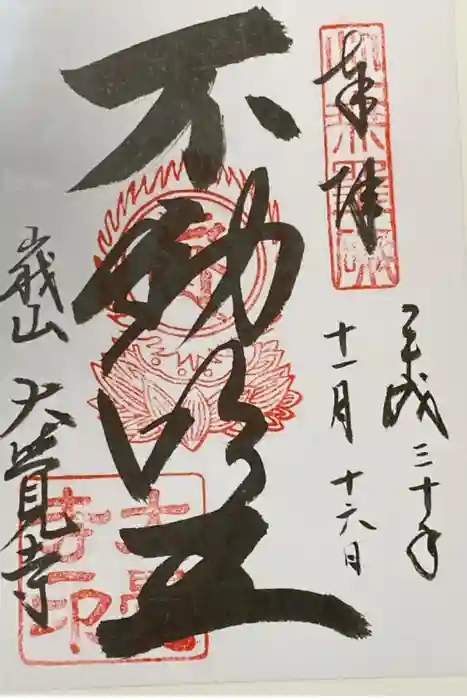 奉拝
平成三十年
十一月十六日
不動明王
峩山 大覚寺
大覚
寺印